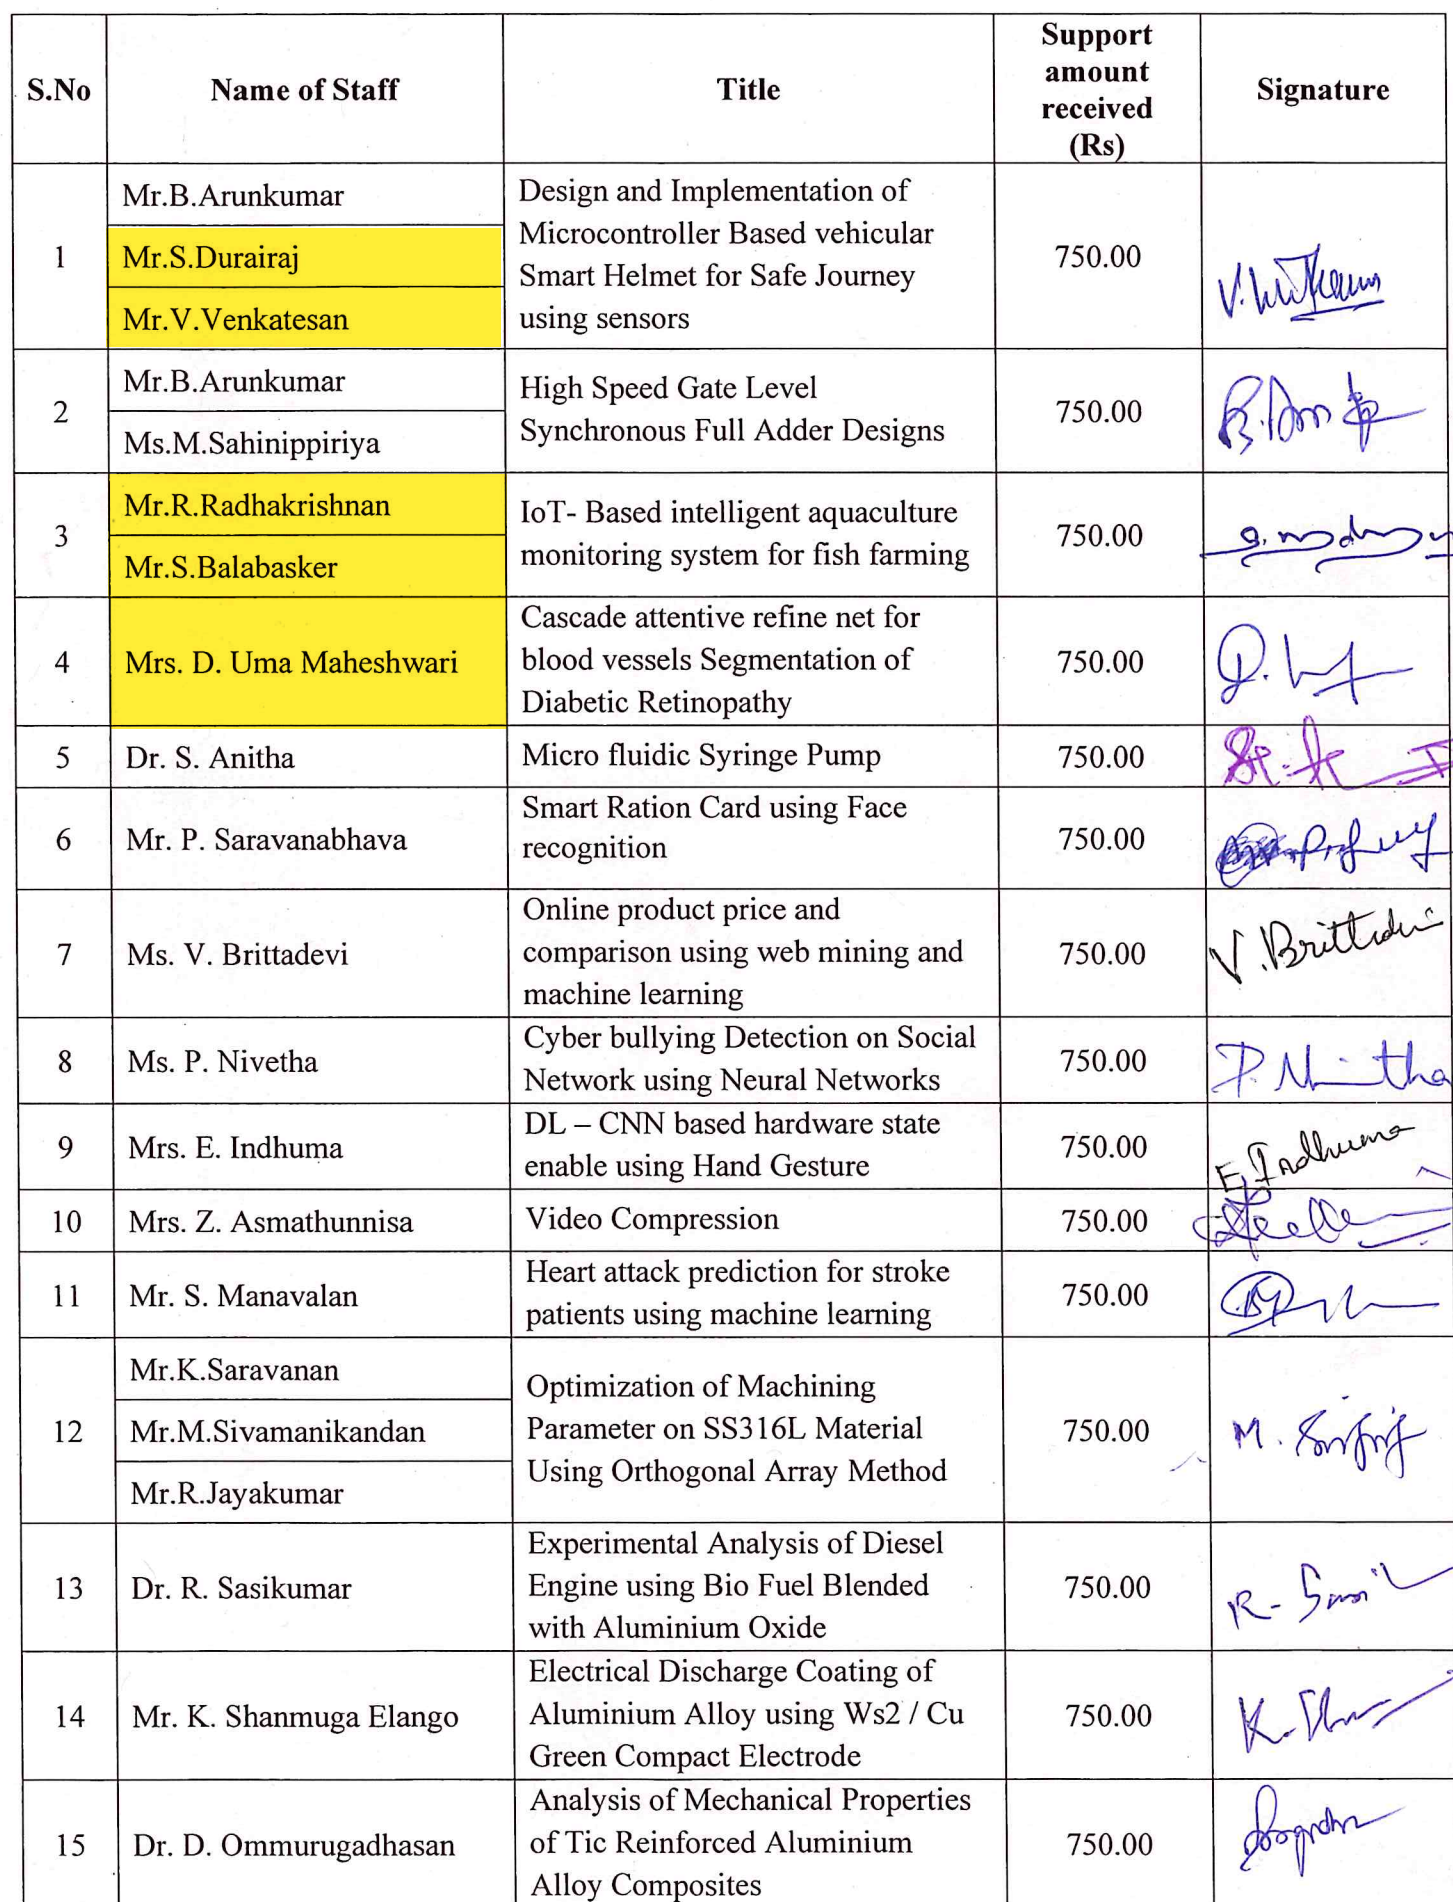 S.No
Name of Staff
Title
Support
amount
received
(Rs)
Signature
1
Mr.B.Arunkumar
Mr.S.Durairaj
Mr.V.Venkatesan
Design and Implementation of
Microcontroller Based vehicular
Smart Helmet for Safe Journey
using sensors
750.00
2
Mr.B.Arunkumar
Ms.M.Sahinippiriya
High Speed Gate Level
Synchronous Full Adder Designs
750.00
3
Mr.R.Radhakrishnan
Mr.S.Balabasker
IoT- Based intelligent aquaculture
monitoring system for fish farming
750.00
4
Mrs. D. Uma Maheshwari
Cascade attentive refine net for
blood vessels Segmentation of
Diabetic Retinopathy
750.00
5
Dr. S. Anitha
Micro fluidic Syringe Pump
750.00
6
Mr. P. Saravanabhava
Smart Ration Card using Face
recognition
750.00
7
Ms. V. Brittadevi
Online product price and
comparison using web mining and
machine learning
750.00
V. Brittadevi
8
Ms. P. Nivetha
Cyber bullying Detection on Social
Network using Neural Networks
750.00
9
Mrs. E. Indhuma
DL – CNN based hardware state
enable using Hand Gesture
750.00
E. Indhuma
10
Mrs. Z. Asmathunnisa
Video Compression
750.00
11
Mr. S. Manavalan
Heart attack prediction for stroke
patients using machine learning
750.00
12
Mr.K.Saravanan
Mr.M.Sivamanikandan
Mr.R.Jayakumar
Optimization of Machining
Parameter on SS316L Material
Using Orthogonal Array Method
750.00
13
Dr. R. Sasikumar
Experimental Analysis of Diesel
Engine using Bio Fuel Blended
with Aluminium Oxide
750.00
14
Mr. K. Shanmuga Elango
Electrical Discharge Coating of
Aluminium Alloy using Ws2 / Cu
Green Compact Electrode
750.00
15
Dr. D. Ommurugadhasan
Analysis of Mechanical Properties
of Tic Reinforced Aluminium
Alloy Composites
750.00